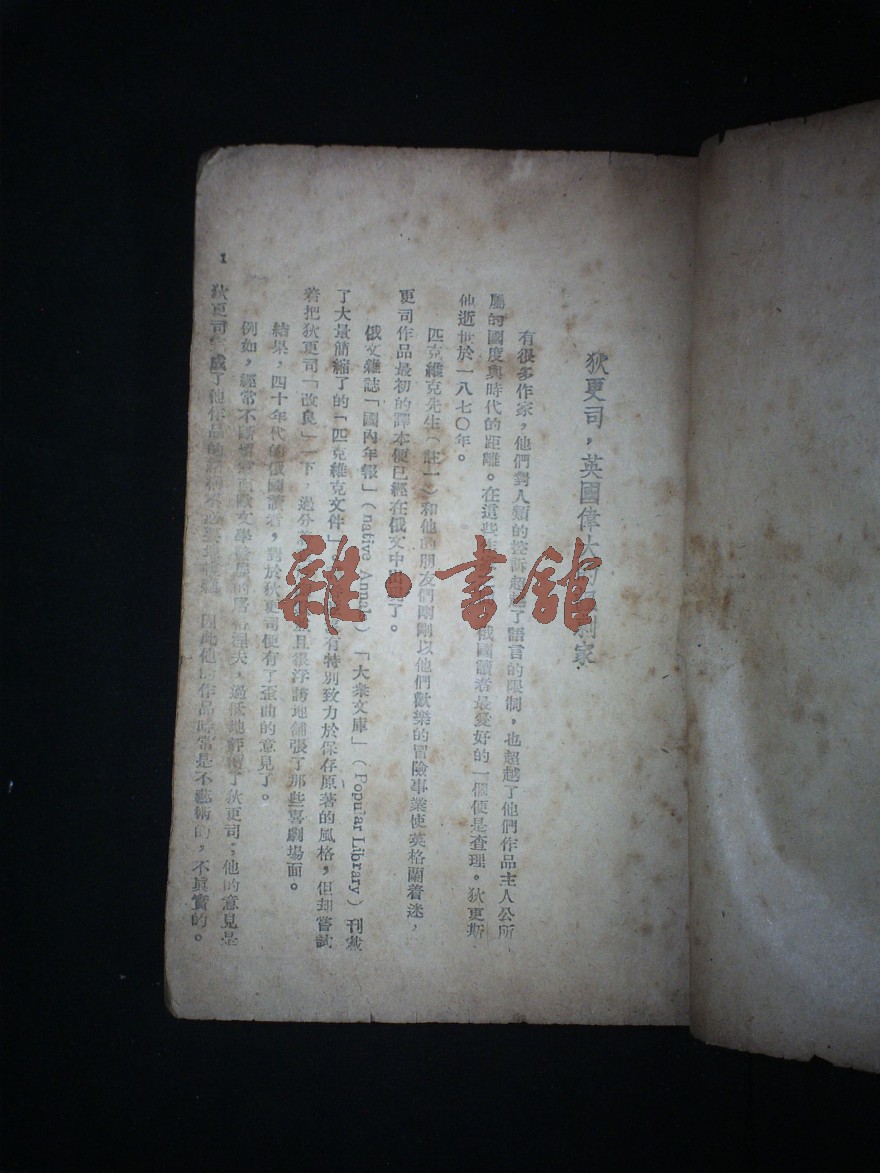 狄更司，英國偉大的諷刺家
有很多作家，他們對人類的控訴超越了語言的限制，也超越了他們作品主人公所
屬的國度與時代的距離。在這些 俄國讀者最愛好的一個便是查理。狄更斯
他逝世於一八七〇年。
匹克維克先生（註一）和他的朋友們剛剛以他們歡樂的冒險事業使英格蘭着迷，
更司作品最初的譯本便已經在俄文中出現了。
俄文雜誌「國內年報」（native Annals）「大衆文庫」（Popular Library）刊載
了大量簡縮了的「匹克維克文件」。 有特別致力於保存原著的風格，但却嘗試
着把狄更司「改良」一下，過分 且很浮誇地舖張了那些喜劇場面。
結果，四十年代的俄國讀者，對於狄更司便有了歪曲的意見了。
例如，經常不斷 文學 的 過低地評價了狄更司；他的意見是
狄更司 成了他作品的 因此他的作品時常是不藝術的，不眞實的。
1
雜·書館